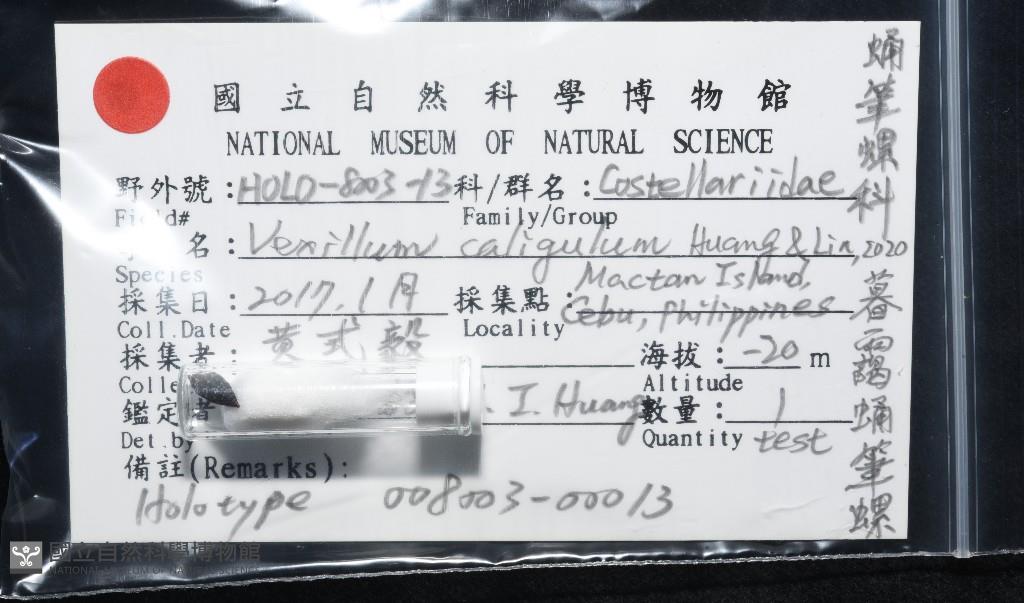 國立自然科學博物館
NATIONAL MUSEUM OF NATURAL SCIENCE
野外號: HOLO-8003-13 科/群名: Costellariidae
Field# Family/Group
名: Vexillum caligulum Huang & Lin, 2020
Species
採集日: 2017.1月 採集點: Mactan Island, Cebu, Philippines
Coll.Date Locality
採集者: 黄式毅 海拔: -20 m
Colle Altitude
鑑定者 I. Huang 數量: 1
Det.by Quantity test
備註(Remarks):
Holotype 008003-00013
蛹筆螺科 暮西 蛹筆螺
國立自然科學博物館
NATIONAL MUSEUM OF NATURAL SCIENCE